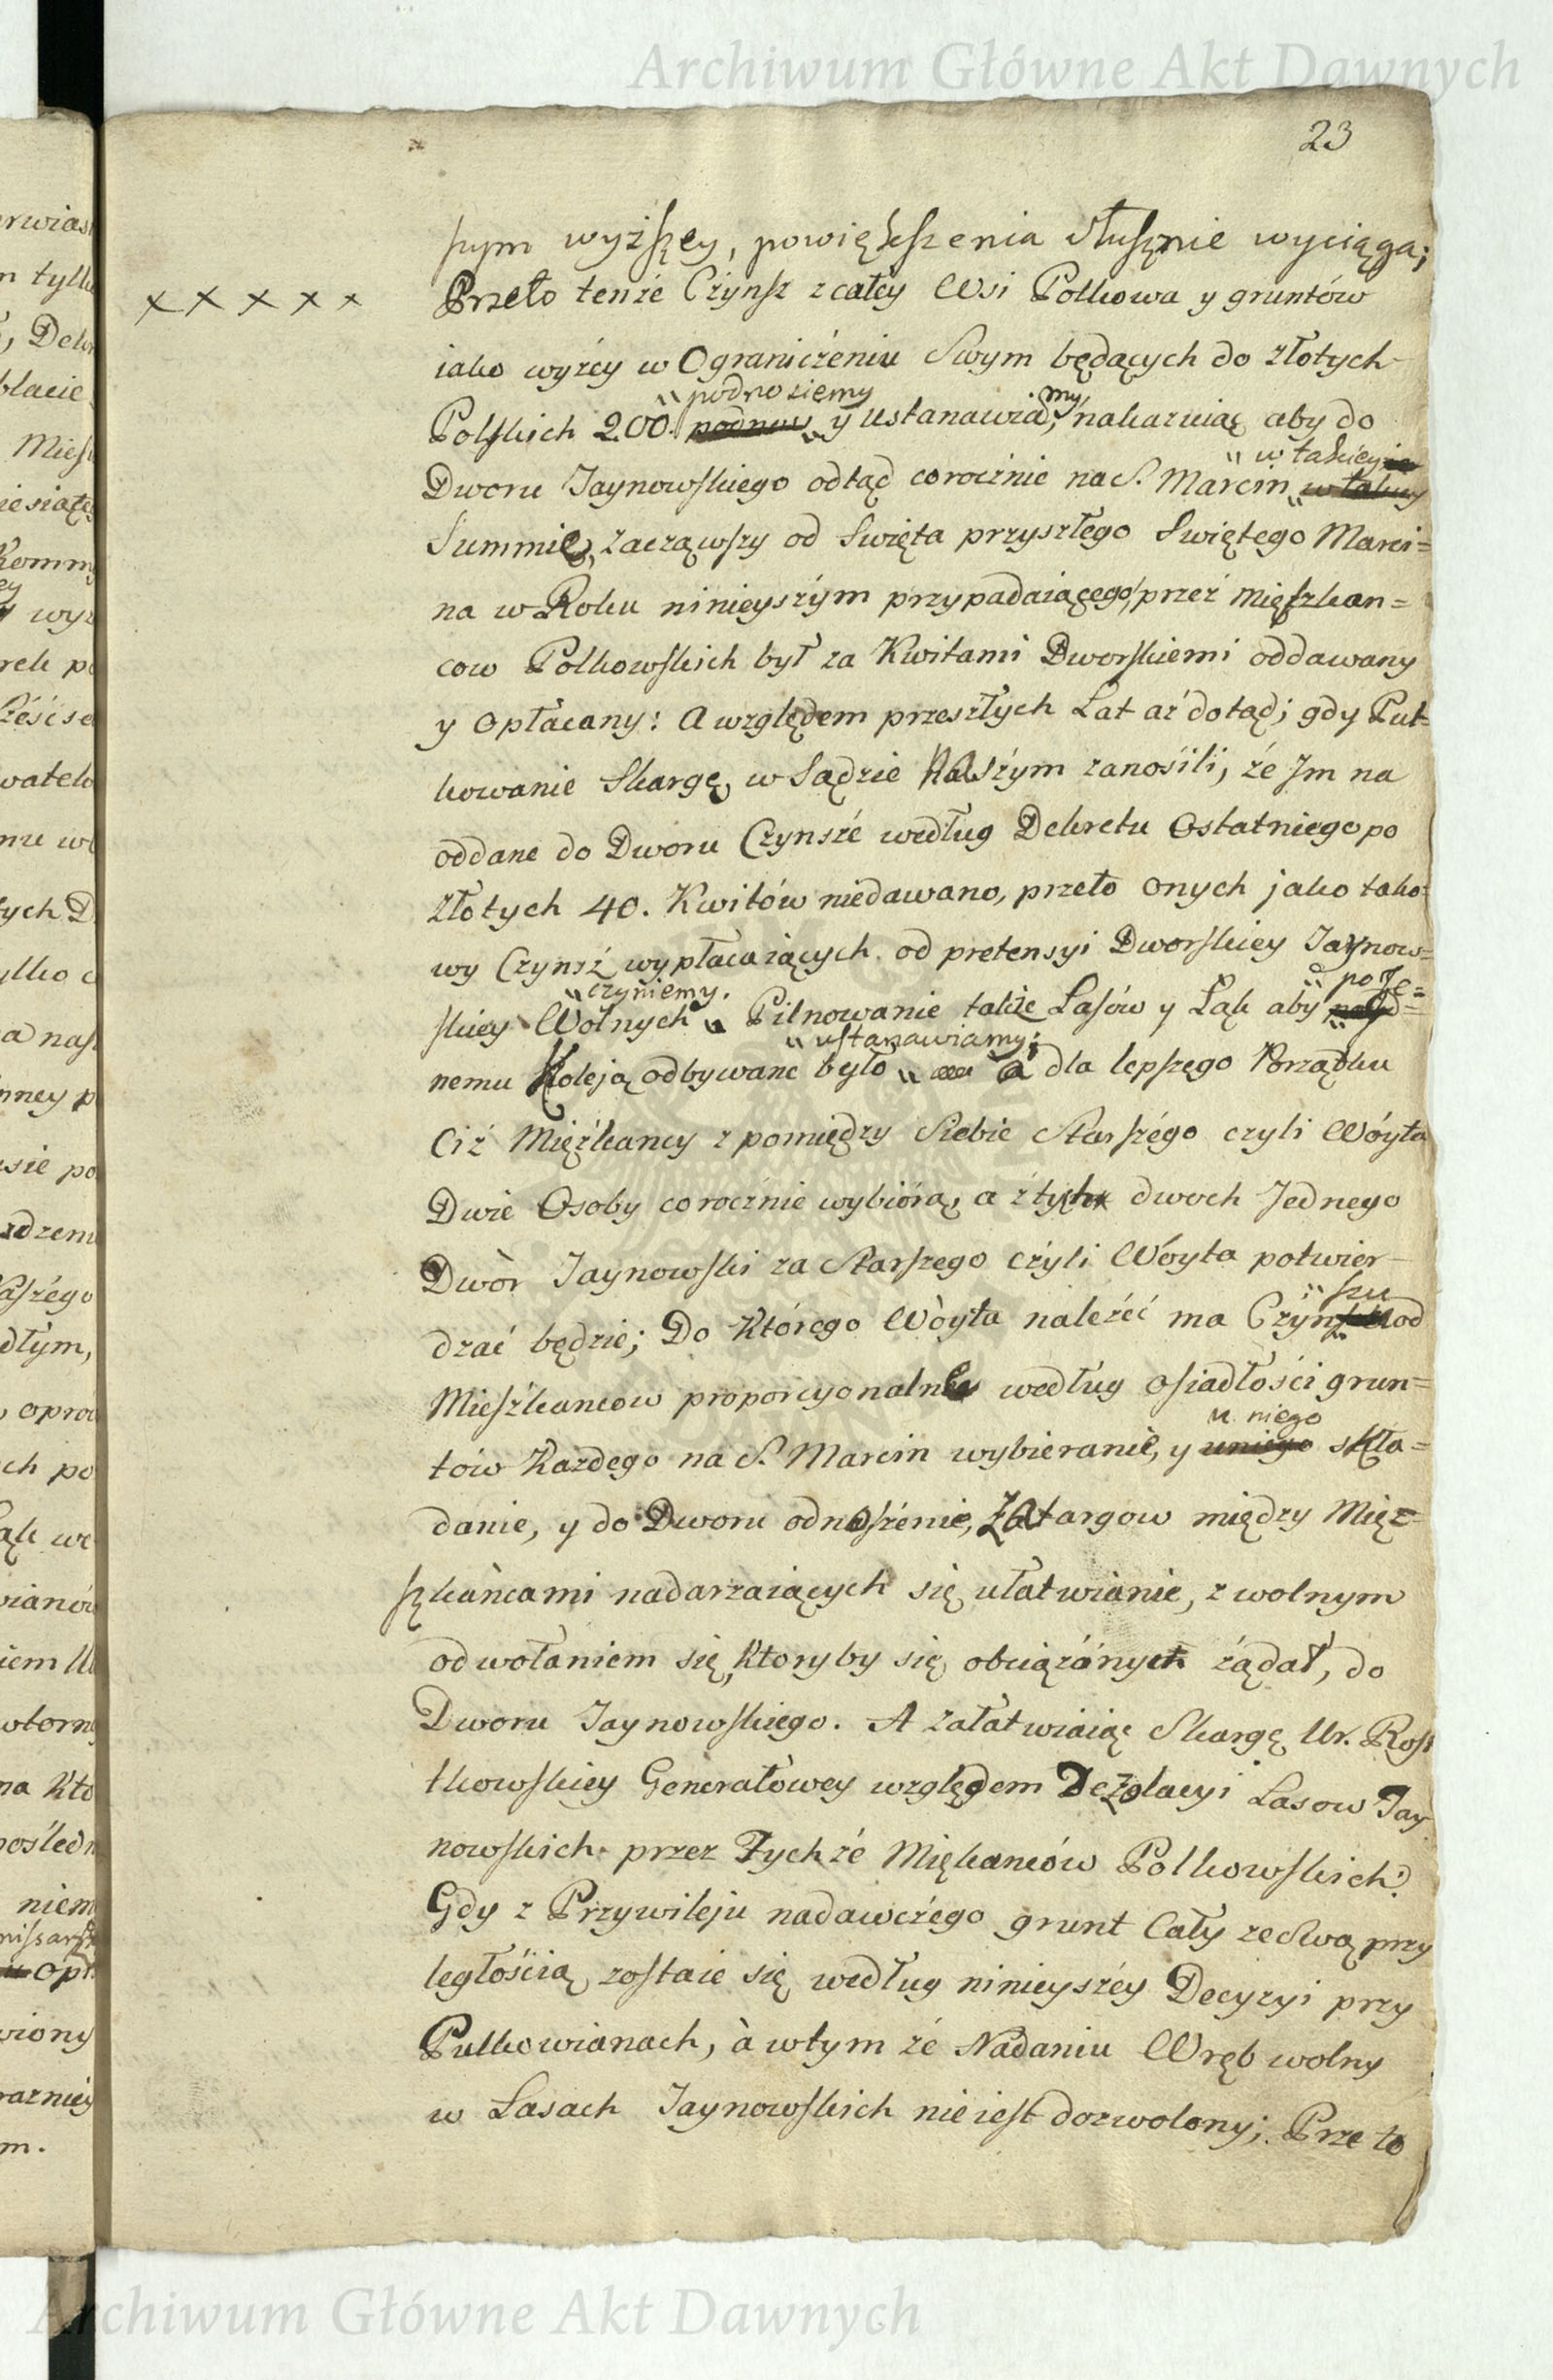 Archiwum Główne Akt Dawnych
23
szym wyższey, powiększenia słusznie wyciąga;
Przeto tenże Czynsz z całey Wsi Polkowa y gruntów
iako wyżey w Ograniczeniu Swym będących do złotych
podnosiemy
Polskich 200. y ustanawiamy, nakazuiąc aby do
w takieyże
Dworu Jaynowskiego odtąd corocznie na S. Marcin
Summie, zacząwszy od Swięta przyszłego Swiętego Marci=
na w Roku ninieyszym przypadaiącego, przez mięszkan=
cow Polkowskich był za Kwitami Dworskiemi oddawany
y opłacany: a względem przeszłych Lat aż dotąd; gdy Put=
kowanie Skargę w Sądzie Naszym zanosili, że Jm na
oddane do Dworu Czynsze według Dekretu Ostatniego po
złotych 40. Kwitów niedawano, przeto onych jako tako=
wy Czynsz wypłacaiących od pretensyi Dworskiey Jaynow=
czyniemy.
skiey Wolnych Pilnowanie także Lasów y Łąk aby
poje=
d=
ustanawiamy;
nemu Koleją odbywane było a dla lepszego Porządku
Ciż Mięźkancy z pomiędzy Siebie Starszego czyli Wóyta
Dwie Osoby corocznie wybiorą, a z tych dwoch Jednego
Dwòr Jaynowski za Starszego czyli Wóyta potwier-
szu
dzać będzie; Do Którego Wòyta należeć ma Czyn od
Mieszkancow proporcyonalnie według osiadłości grun=
u niego
tów Każdego na S. Marcin wybieranie, y skła=
danie, y do Dworu odnoszenie, Zatargow między Mięz=
szkańcami nadarzaiących się ułatwianie, z wolnym
odwołaniem się, Ktoryby się obciążónych żądał, do
Dworu Jaynowskiego. A załatwiaiąc Skargę Ur. Rost
kowskiey Generałowey względem Dezolacyi Lasow Jay
nowskich przez Tychże Miękanców Polkowskich:
Gdy z Przywileju nadawczego grunt Cały ze Swą przy
ległością zostaie się według ninieyszey Decyzyi przy
Pulkowianach, à w tym że Nadaniu Wręb wolny
w Lasach Jaynowskich nie iest dozwolony; Prze to
Archiwum Główne Akt Dawnych